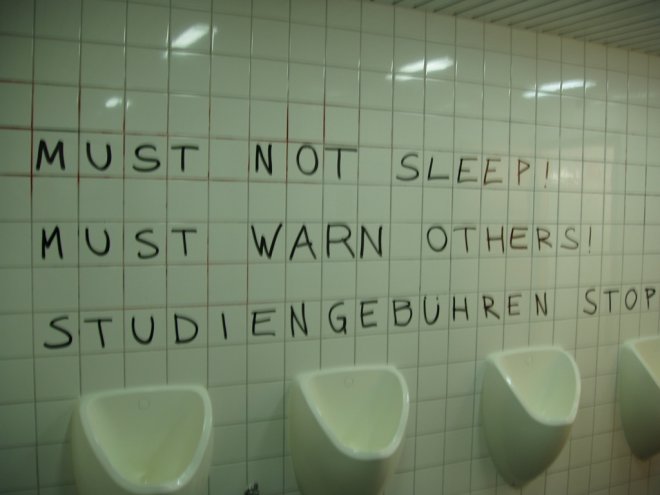 MUST NOT SLEEP!
MUST WARN OTHERS!
STUDIENGEBÜHREN STOP